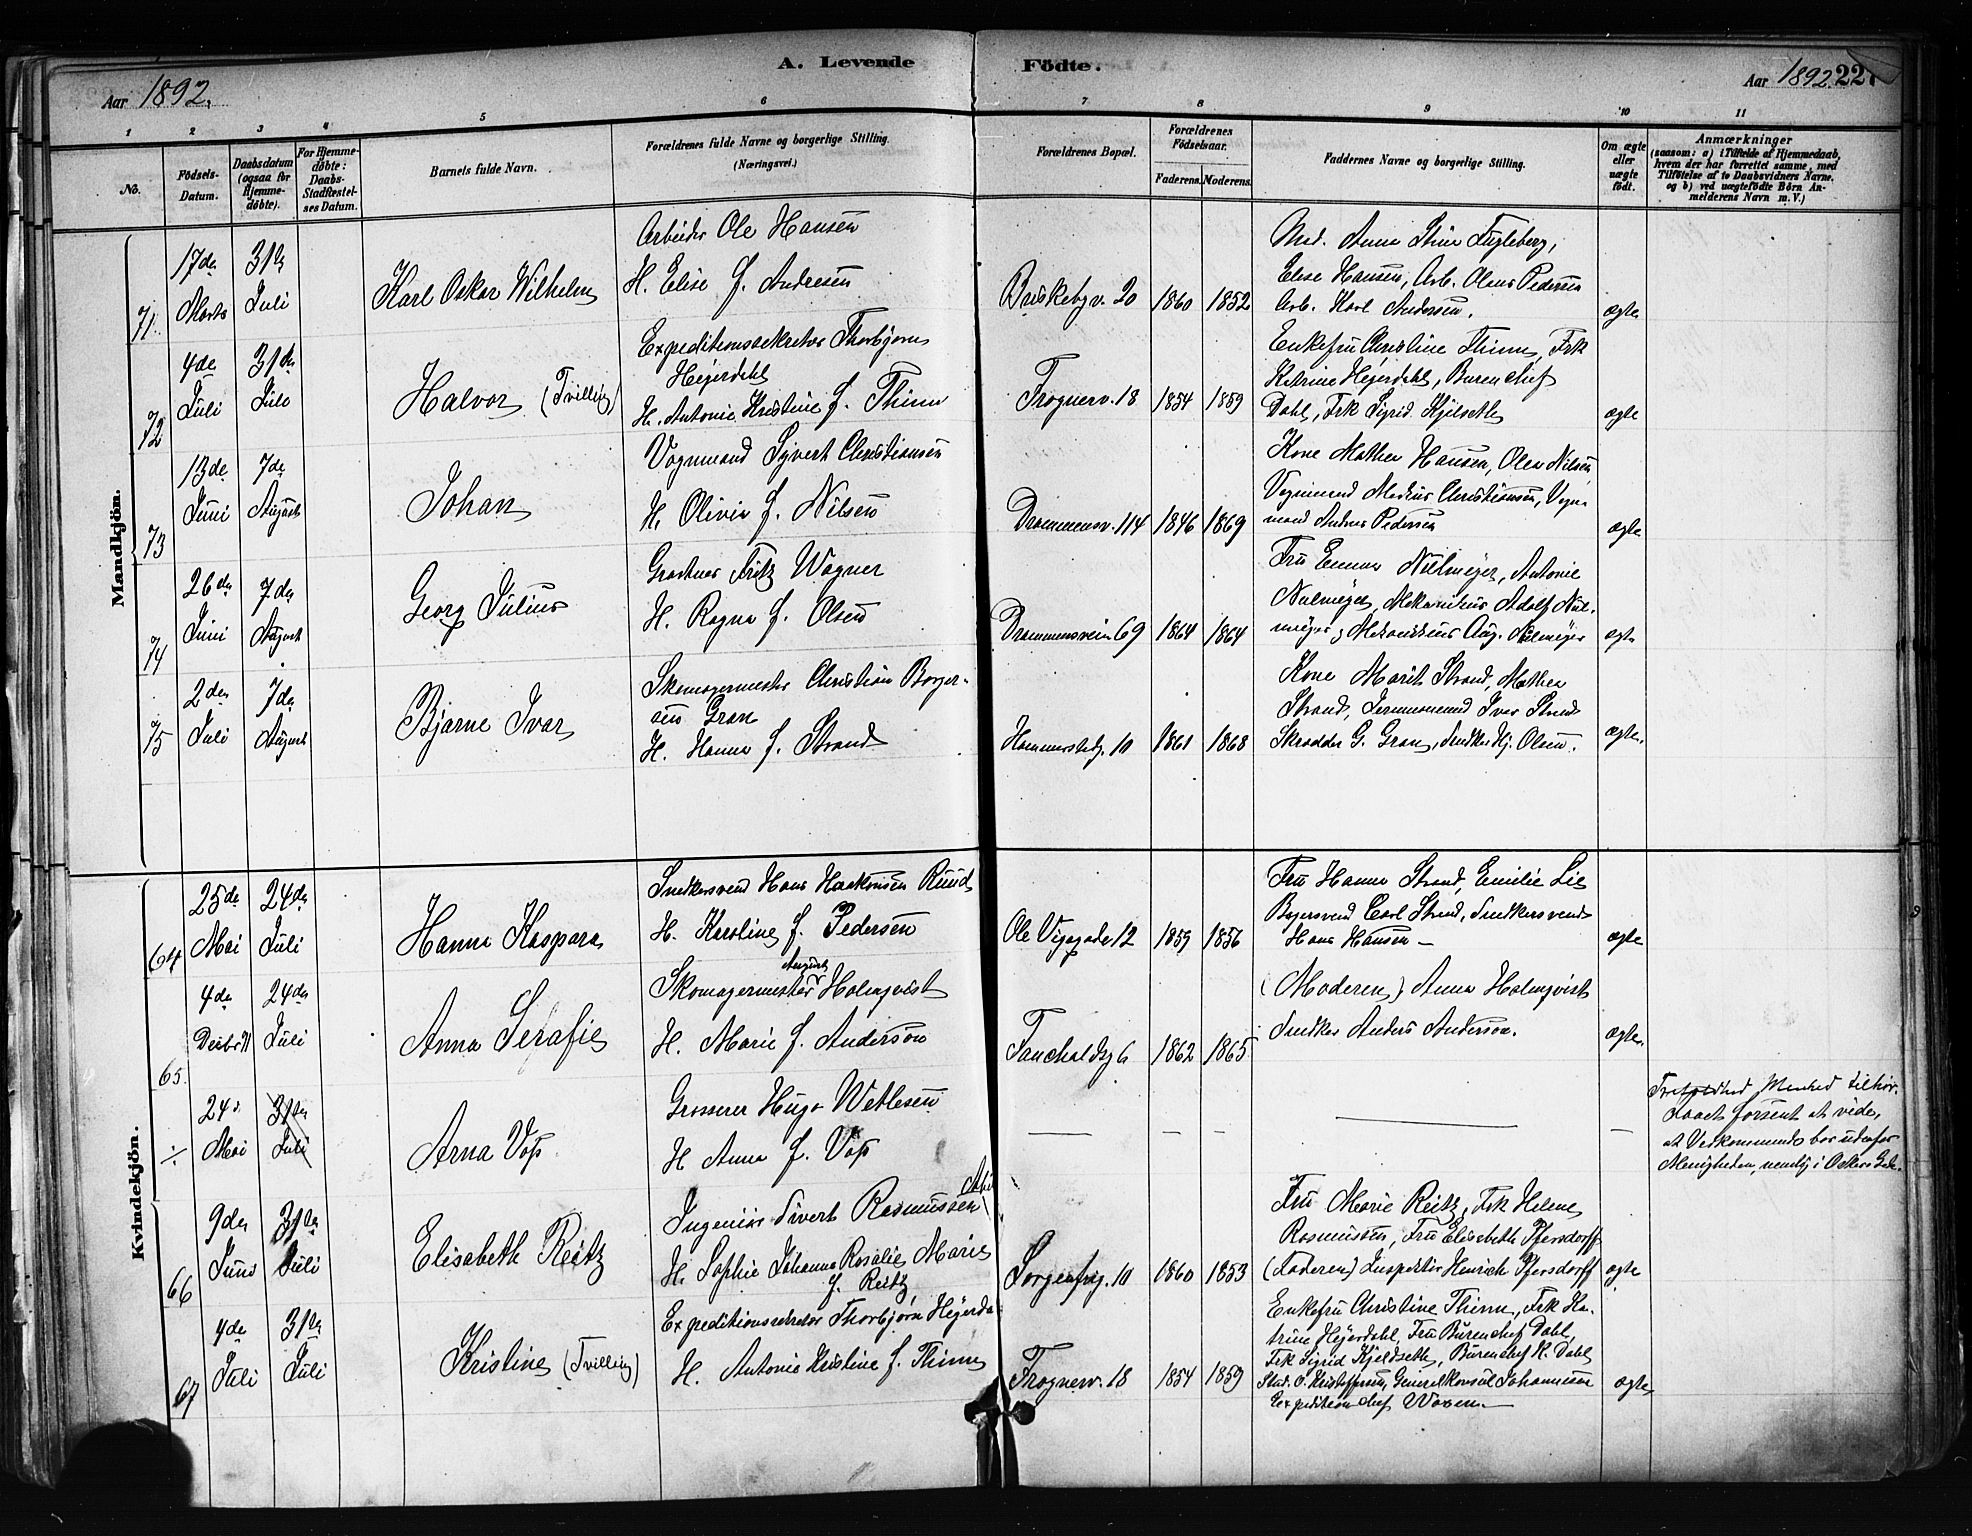 A. Levende Födte.
Aar 1892.
Aar 1892. 227
1 2 3 4 5 6 7 8 9 10 11
No.
Födsels-Datum.
Daabsdatum (ogsaa for Hjemme-döbte).
For Hjemme-döbte: Daabs-Stadfæstel-ses Datum.
Barnets fulde Navn.
Forældrenes fulde Navne og borgerlige Stilling.
(Næringsvei.)
Forældrenes Bopæl.
Forældrenes Födselsaar.
Faderens. Moderens.
Faddernes Navne og borgerlige Stilling.
Om ægte eller uægte födt.
Anmærkninger
(saasom: a) i Tilfælde af Hjemmedaab, hvem der har forrettet samme, med Tilföielse af to Daabsvidners Navne, og b) ved uægtefödte Börn An-melderens Navn m. V.)
Mandkjön.
71.
17de Marts
31te Juli
Karl Oskar Wilhelm
Arbeider Ole Hansen
H. Elise f. Andresen
Briskebyv. 20
1860 1852
Anna Stine Fugleberg,
Elise Hansen, Arb. Olaus Pedersen
Arb. Karl Andersen.
ægte
72
4de Juli
31te Juli
Halvor (Tvilling)
Expeditionssekretær Thorbjørn
Hejerdahl
H. Antonie Kristine f. Thinn
Frognerv. 18
1854 1859
Enkefru Christine Thinn, Frk
Katrine Hejerdahl, Bureauchef
Dahl, Frk Sigrid Kjelseth
ægte
73
13de Juni
7de August
Johan
Vognmand Syvert Christiansen
H. Olivia f. Nilsen
Drammensv. 114
1846 1869
Kone Mathea Hansen, Olea Nilsen
Vognmand Christiansen, Vogn-
mand Andreas Pedersen
ægte
74
26de Juni
7de August
Georg Julius
Gartner Fritz Wagner
H. Ragna f. Olsen
Drammensvein 69
1864 1864
Fru Emma Nülmeyer, Antonie
Nülmeyer, Mekanikus Adolf Nül-
meyer, Mekanikus Aug. Nülmeyer
ægte
75
2den Juli
7de August
Bjarne Ivar
Skomagermester Christian Borger-
sen Gran
H. Hanna f. Strand
Hammerstadg. 10
1861 1868
Kone Marit Strand, Mathea
Strand, Ivar Strand
Skrædder G. Gran, Snedker Hj. Olsen.
ægte.
Kvindekjön.
64
25de Mai
24de Juli
Hanna Kaspara
Snedkersvend Hans Haakonsen Ruud
H. Karoline f. Pedersen
Ole Vigsgade 12
1859 1856
Fru Hanna Strand, Emilie Lie
Bagersvend Carl Strand, Snedkersvend
Hans Hansen –
ægte
65.
4de Decbr. 91
24de Juli
Anna Serafie
Skomagermester August Holmqvist
H. Marie f. Anderson
Fauchaldsg 6
1862 1865
(Moderen) Anna Holmqvist
Snedker Anders Anderson.
ægte.
÷
24de Mai
31te Juli
Arna Voss
Grosserer Hugo Wetlesen
H Anna f. Voss
— — — — —
Menhed tilhör.
forsent at vide,
at Vedkommende bor udenfor
Menigheden, nemlig i Oskars Gade.
66
9de Juni
31te Juli
Elisabeth Reitz
Ingeniør Sivert Rasmussen
H. Sophie Johanna Rosalie Marie
f. Reitz
Sorgenfrig. 10
1860 1853
Fru Marie Reitz, Frk Helene
Rasmussen, Fru Elisabeth Pfersdorff
(Faderen) Inspektør Heinrich Pfersdorff
ægte
67
4de Juli
31te Juli
Kristine (Tvilling)
Expeditionssekretær Thorbjørn Hejerdahl
H. Antonie Kristine f. Thinn
Frognerv. 18
1854 1859
Enkefru Christine Thinn, Frk Ka-
trine Hejerdahl, Fru Bureauchef Dahl,
Frk Sigrid Kjeldseth, Bureauchef K. Dahl
Stud. O. Kristoffersen, Generalkonsul Johannesen
Expeditionschef Woxen. —
ægte